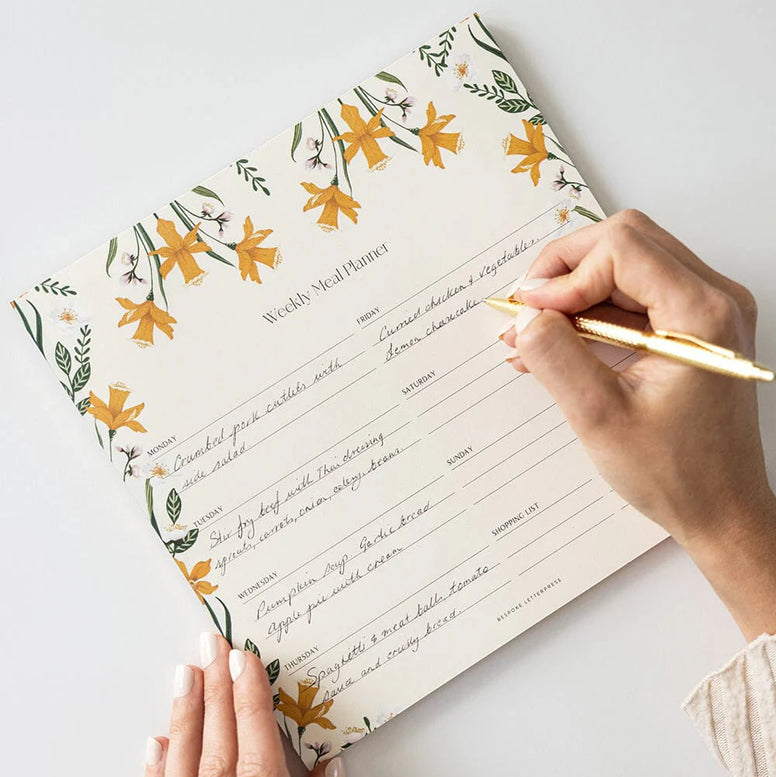 Weekly Meal Planner
MONDAY
Crumbed pork cutlets with
side salad
TUESDAY
Stir fry beef with Thai dressing
sprouts, carrots, onion, celery, beans
WEDNESDAY
Pumpkin soup. Garlic bread
Apple pie with cream
THURSDAY
Spaghetti & meat balls, tomato
and crusty bread.
FRIDAY
Curried chicken & vegetables,
lemon cheesecake
SATURDAY
SUNDAY
SHOPPING LIST
BESPOKE LETTERPRESS